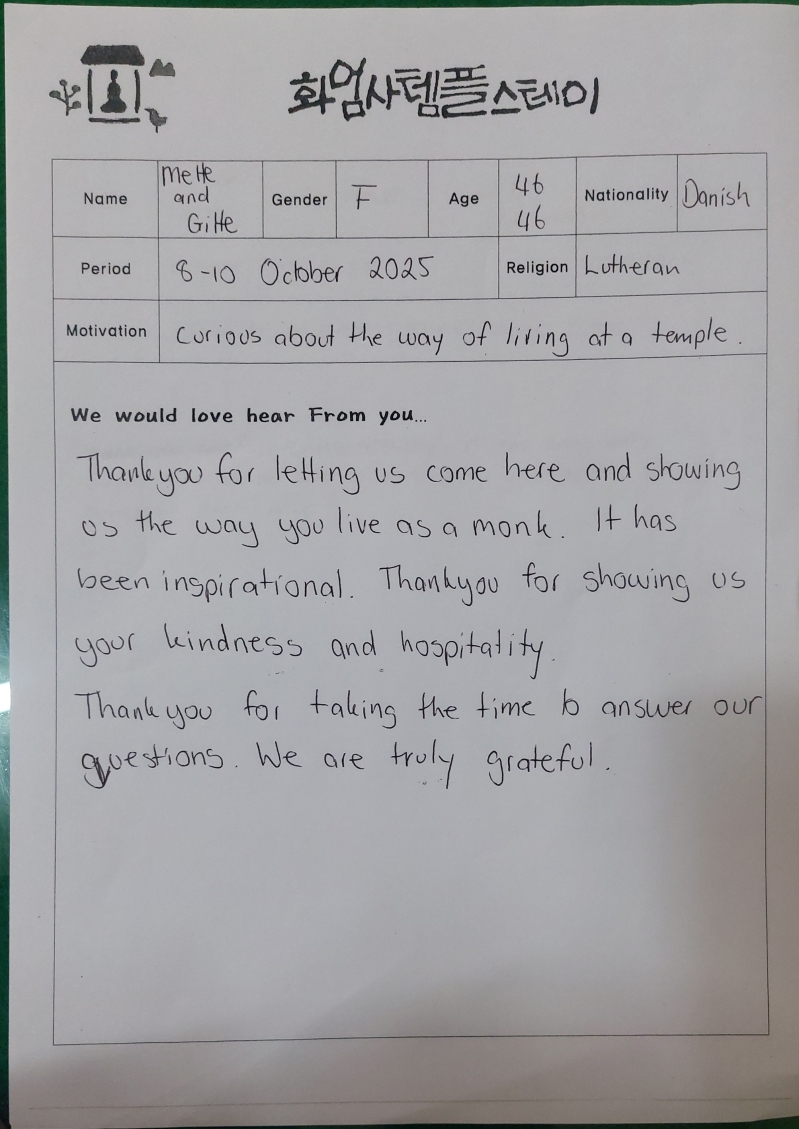 화엄사템플스테이
Name Mette and Gitte Gender F Age 46 46 Nationality Danish
Period 8-10 October 2025 Religion Lutheran
Motivation Curious about the way of living at a temple.
We would love hear From you...
Thank you for letting us come here and showing
us the way you live as a monk. It has
been inspirational. Thank you for showing us
your kindness and hospitality.
Thank you for taking the time to answer our
questions. We are truly grateful.